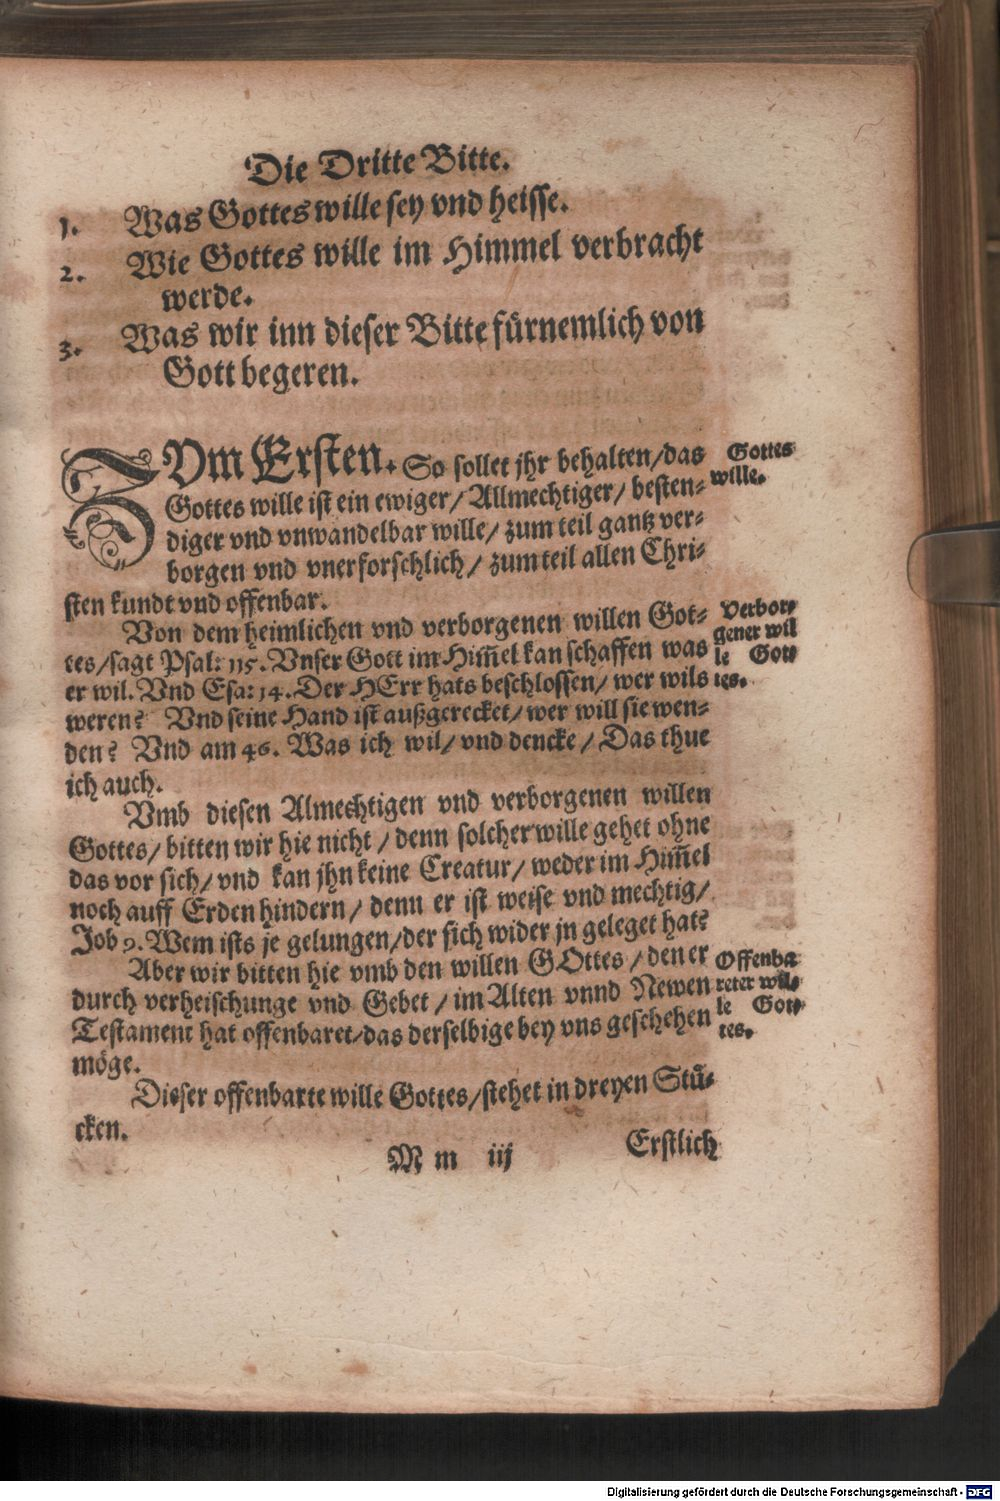 Die Dritte Bitte.
1. Was Gottes wille sey vnd heisse.
2. Wie Gottes wille im Himmel verbracht
werde.
3. Was wir inn dieser Bitte fürnemlich von
Gott begeren.
ZVm Ersten. So sollet jhr behalten/das
Gottes wille.
Gottes wille ist ein ewiger/ Allmechtiger/ besten-
diger vnd vnwandelbar wille/ zum teil gantz ver-
borgen vnd vnerforschlich/ zum teil allen Chri-
sten kundt vnd offenbar.
Von dem heimlichen vnd verborgenen willen Got-
Verbor-
gener wil
le Got-
tes.
tes/sagt Psal: 115. Vnser Gott im Him̃el kan schaffen was
er wil. Vnd Esa: 14. Der HErr hats beschlossen/ wer wils
weren? Vnd seine Hand ist außgerecket/ wer will sie wen-
den? Vnd am 46. Was ich wil/ vnd dencke/ Das thue
ich auch.
Vmb diesen Almechtigen vnd verborgenen willen
Gottes/ bitten wir hie nicht/ denn solcher wille gehet ohne
das vor sich/ vnd kan jhn keine Creatur/ weder im Him̃el
noch auff Erden hindern/ denn er ist weise vnd mechtig/
Job 9. Wem ists je gelungen/der sich wider jn geleget hat?
Aber wir bitten hie vmb den willen GOttes/ den er
Offenba
reter wil-
le Got-
tes.
durch verheischunge vnd Gebet/ im Alten vnnd Newen
Testament hat offenbaret/das derselbige bey vns geschehen
möge.
Dieser offenbarte wille Gottes/stehet in dreyen Stü-
cken.
M m iij Erstlich
Digitalisierung gefördert durch die Deutsche Forschungsgemeinschaft - DFG